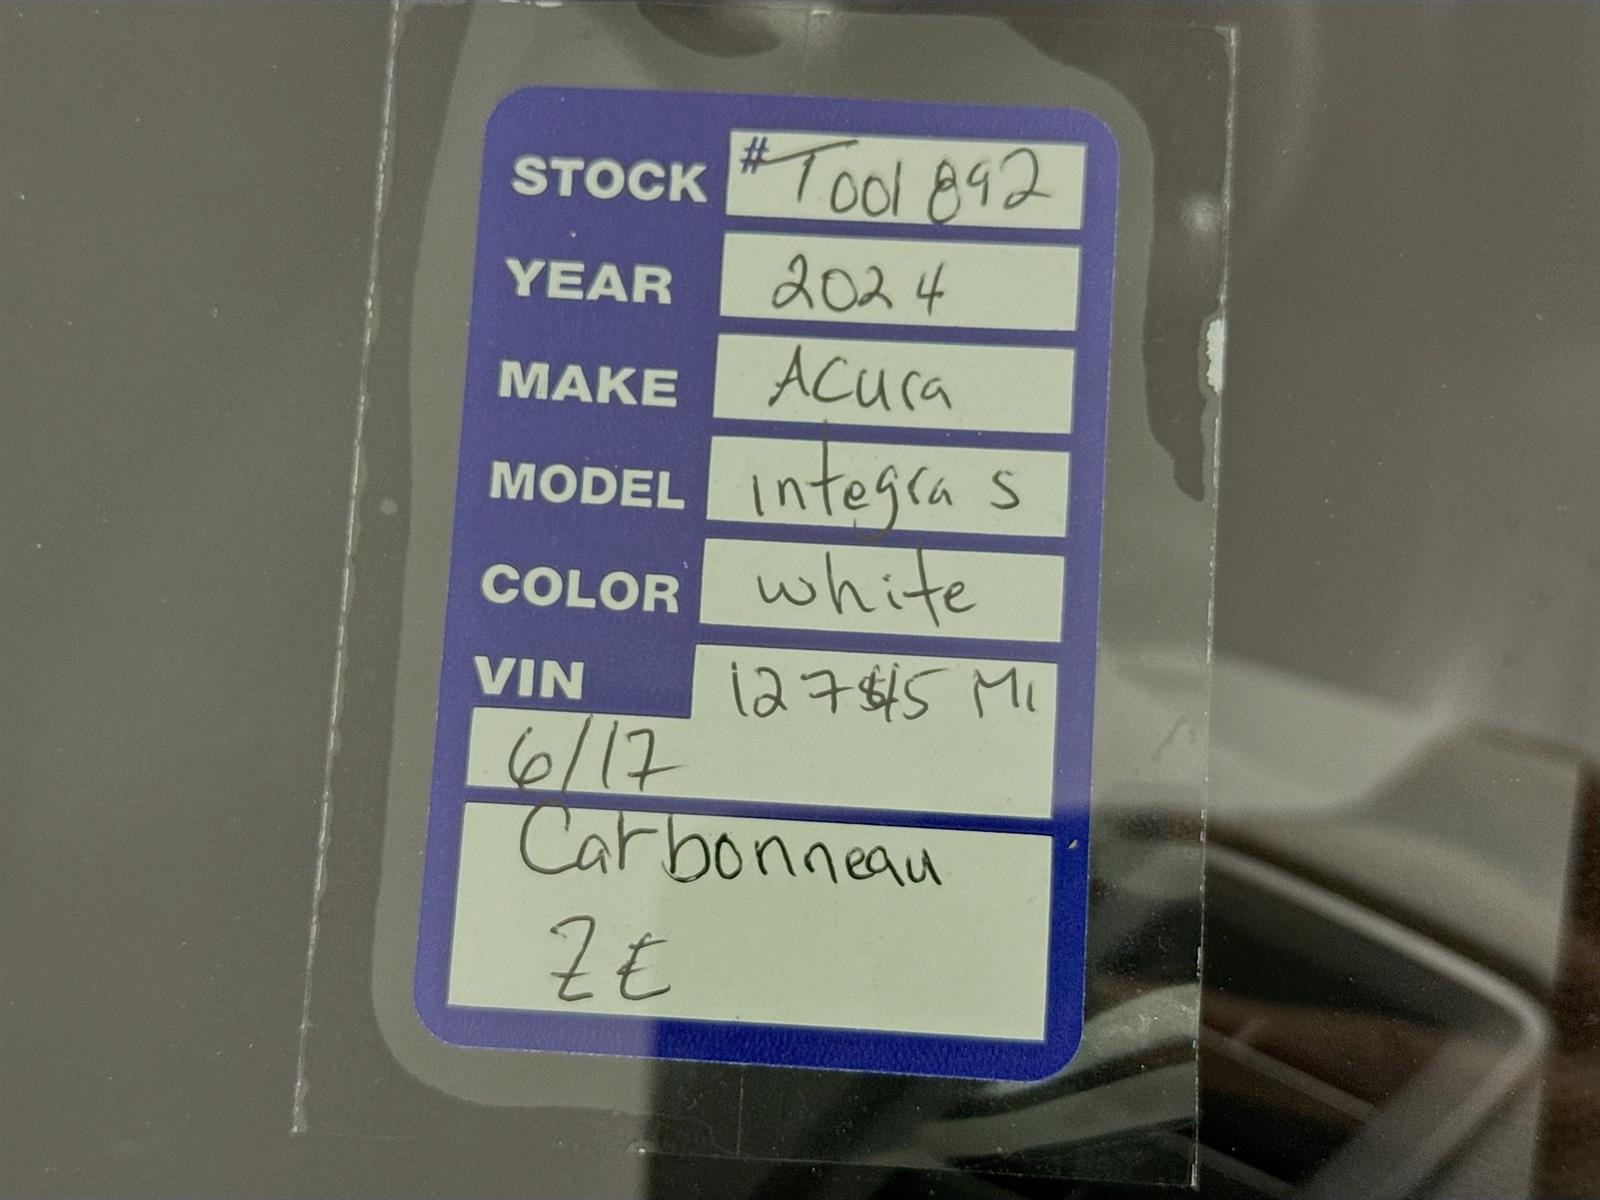 STOCK #T001892
YEAR 2024
MAKE Acura
MODEL integra s
COLOR white
VIN Mi
6/17
Carbonneau
ZE